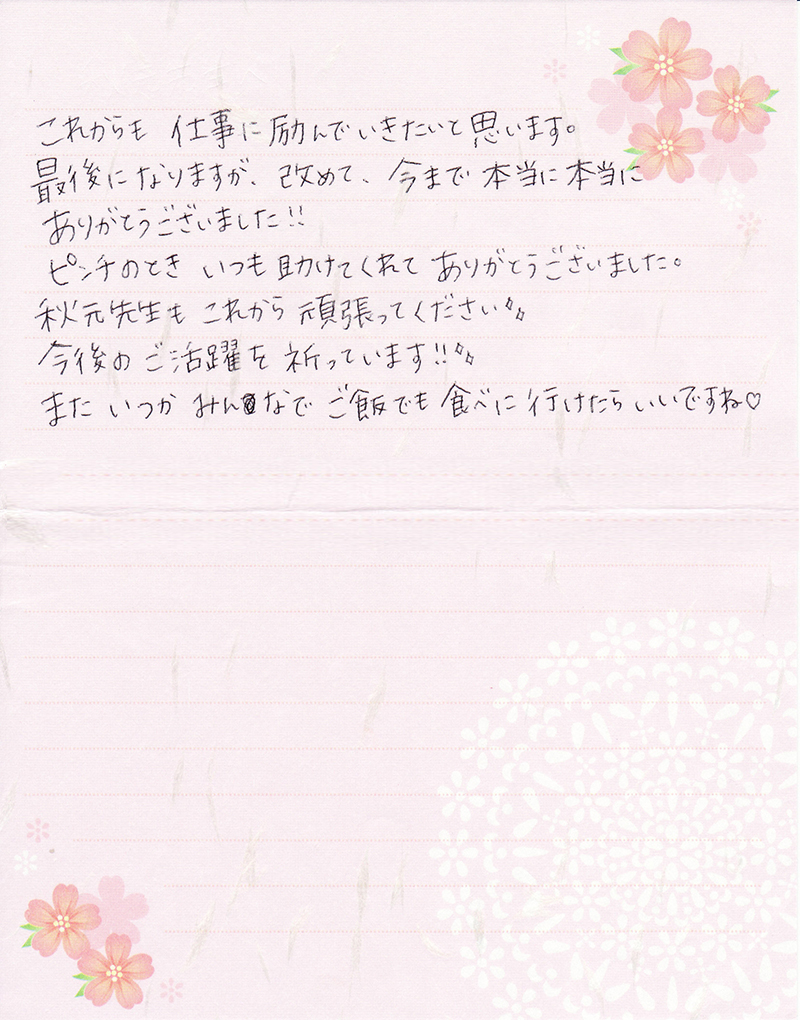 これからも 仕事に励んでいきたいと思います。
最後になりますが、改めて、今まで本当に本当に
ありがとうございました!!
ピンチのとき いつも助けてくれて ありがとうございました。
秋元先生も これから 頑張ってください
今後の ご活躍を 祈っています!!
また いつか みんなで ご飯でも 食べに 行けたら いいですね♡